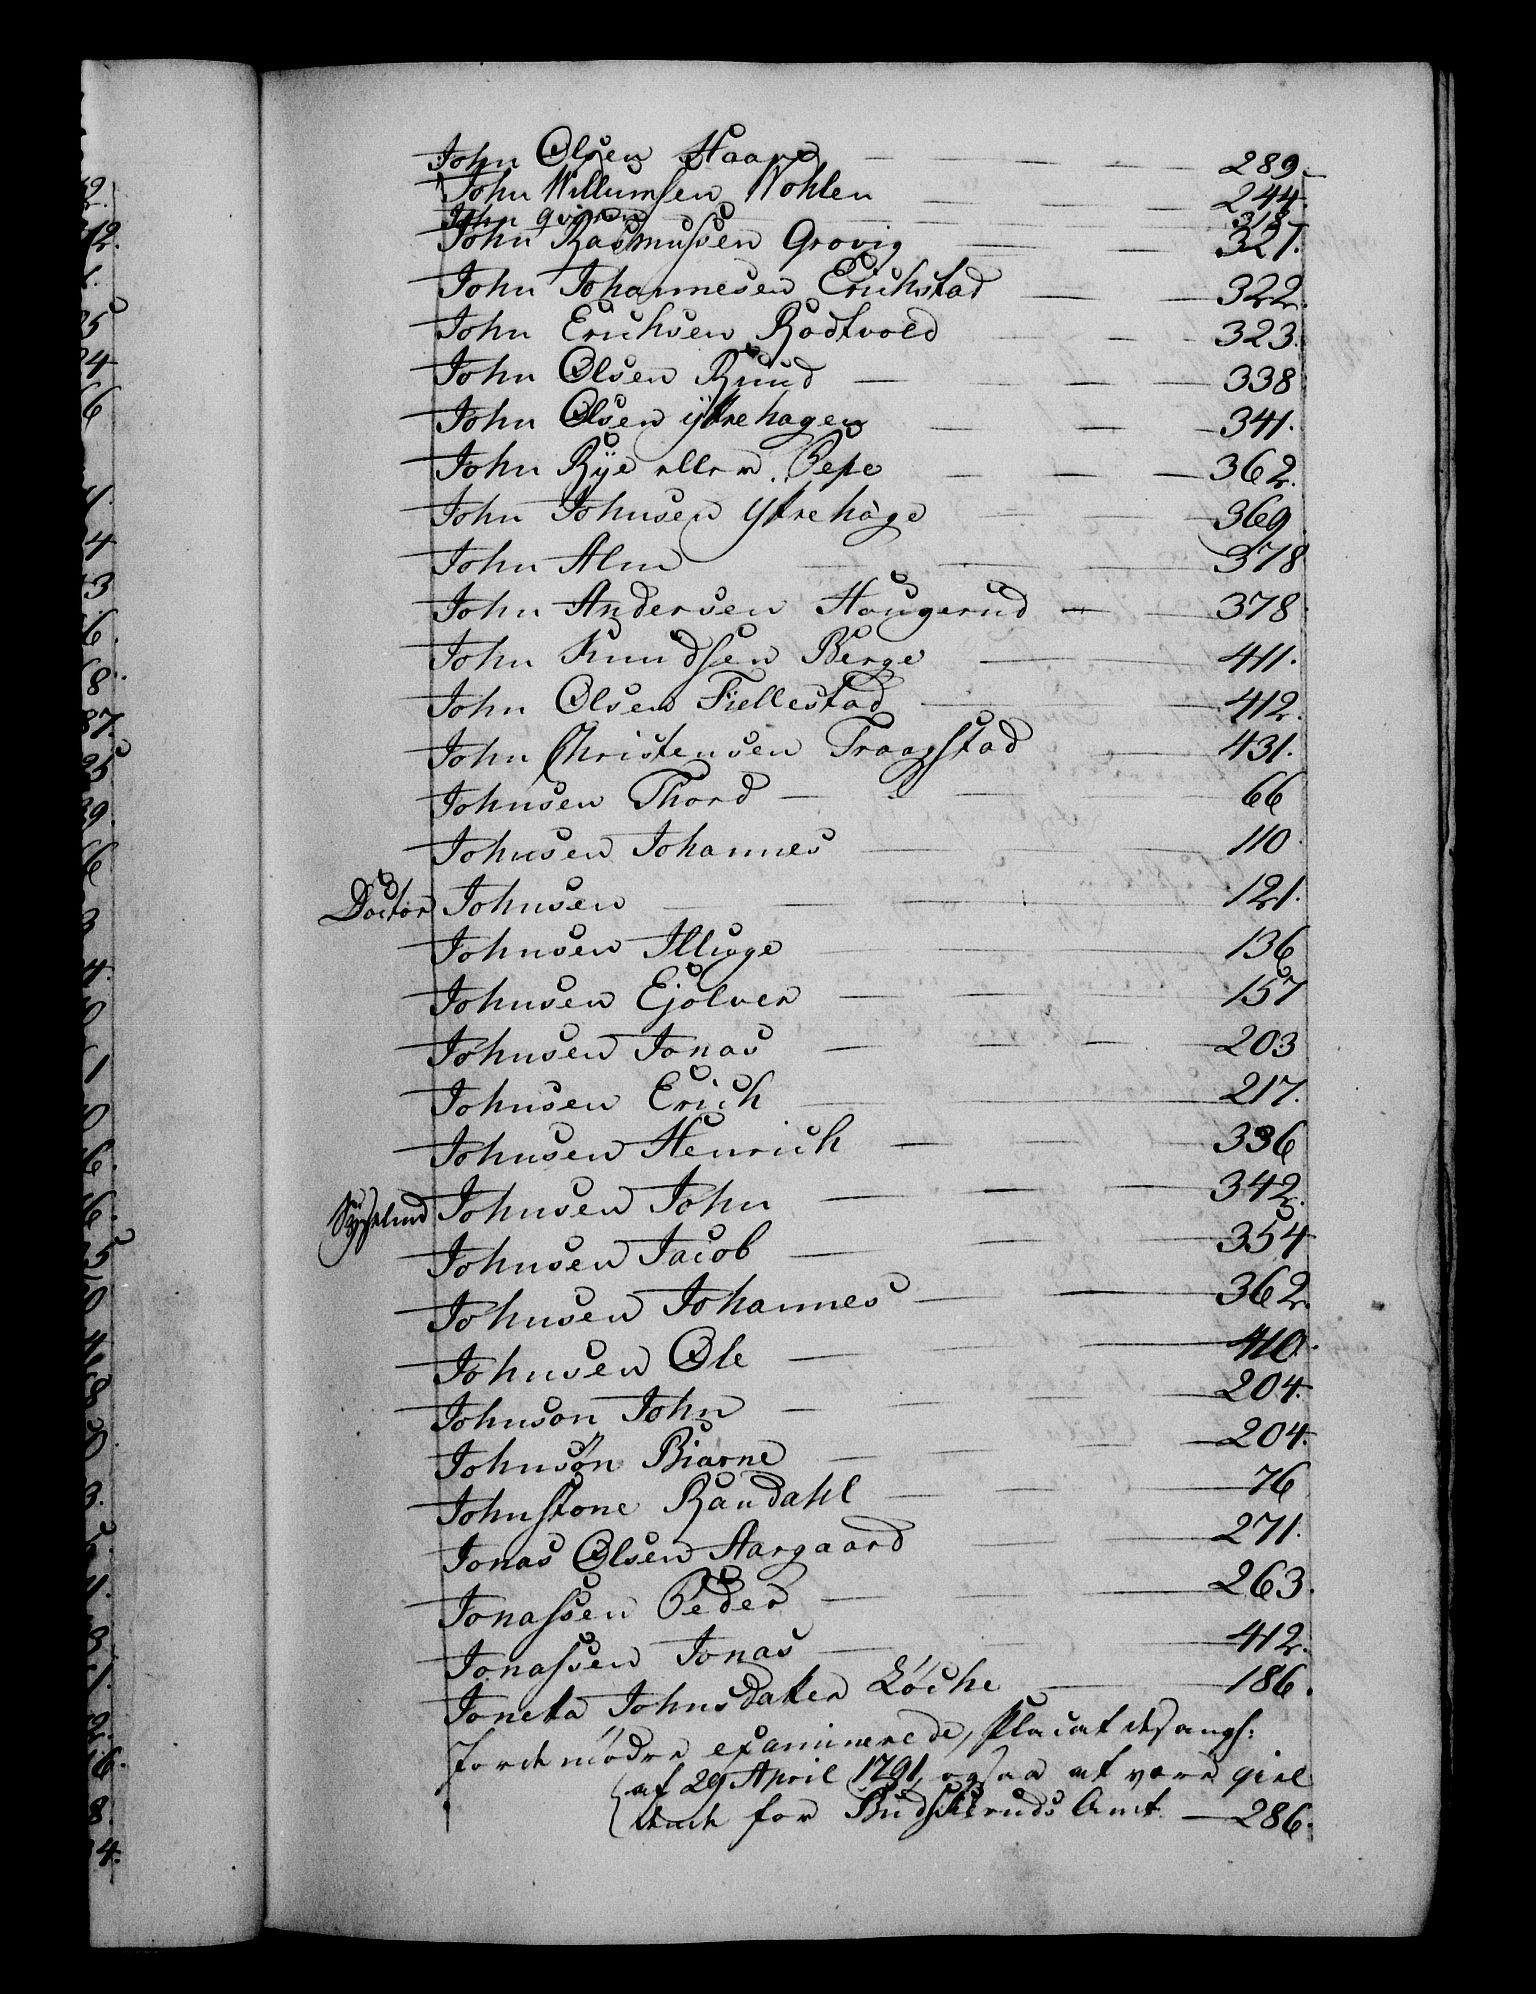 John Olsen Haave 289.
John Willumsen Wohlen 244.
John qvisen 318.
John Rasmussen Grovig 327.
John Johannesen Erichstad 322.
John Erichsen Rodtvold 323.
John Olsen Ruud 338
John Olsen ÿttrehagen 341.
John Rÿe eller Bepe 362.
John Johnsen ÿttrehage 369.
John Alm 378
John Andersen Hougerud 378.
John Knudsen Berge 411.
John Olsen Fiellestad 412.
John Christensen Traagstad 431.
Johnsen Thord 66
Johnsen Johannes 110.
Doctor Johnsen 121.
Johnsen Illuge 136
Johnsen Ejolver 157
Johnsen Jonas 203
Johnsen Erich 217.
Johnsen Henrich 336
Sÿsselmd Johnsen John 342.
Johnsen Jacob 354
Johnsen Johannes 362.
Johnsen Ole 410.
Johnson John 204.
Johnsön Biarne 204.
Johnstone Randahl 76
Jonas Olsen Aargaard 271.
Jonassen Peder 263.
Jonassen Jonas 412.
Joneta Johnsdatter Löche 186.
Jordemödre examinerede, Placat desangh:
af 29 April 1791, ogsaa at være giel
dende for Budskeruds Amt 286.